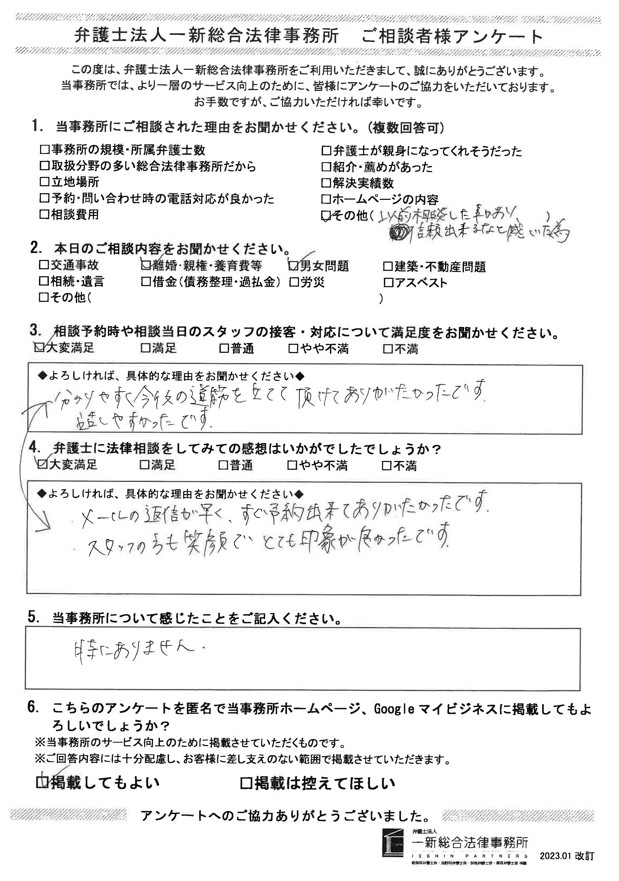 弁護士法人一新総合法律事務所 ご相談者様アンケート
この度は、弁護士法人一新総合法律事務所をご利用いただきまして、誠にありがとうございます。
当事務所では、より一層のサービス向上のために、皆様にアンケートのご協力をいただいております。
お手数ですが、ご協力いただければ幸いです。
1. 当事務所にご相談された理由をお聞かせください。(複数回答可)
□事務所の規模・所属弁護士数 □弁護士が親身になってくれそうだった
□取扱分野の多い総合法律事務所だから □紹介・薦めがあった
□立地場所 □解決実績数
□予約・問い合わせ時の電話対応が良かった □ホームページの内容
□相談費用 ☑その他(以前相談した事があり)
信頼出来るなと感じた為
2. 本日のご相談内容をお聞かせください。
□交通事故 ☑離婚・親権・養育費等 ☑男女問題 □建築・不動産問題
□相続・遺言 □借金(債務整理・過払金) □労災 □アスベスト
□その他( )
3. 相談予約時や相談当日のスタッフの接客・対応について満足度をお聞かせください。
☑大変満足 □満足 □普通 □やや不満 □不満
◆よろしければ、具体的な理由をお聞かせください◆
分かりやすく今後の道筋を立てて頂けてありがたかったです。
話しやすかったです。
4. 弁護士に法律相談をしてみての感想はいかがでしたでしょうか?
☑大変満足 □満足 □普通 □やや不満 □不満
◆よろしければ、具体的な理由をお聞かせください◆
・メールの返信が早く、すぐ予約出来てありがたかったです。
・スタッフの方も笑顔で とても印象が良かったです。
5. 当事務所について感じたことをご記入ください。
特にありません。
6. こちらのアンケートを匿名で当事務所ホームページ、Googleマイビジネスに掲載してもよ
ろしいでしょうか?
※当事務所のサービス向上のために掲載させていただくものです。
※ご回答内容には十分配慮し、お客様に差し支えのない範囲で掲載させていただきます。
☑掲載してもよい □掲載は控えてほしい
アンケートへのご協力ありがとうございました。
弁護士法人
一新総合法律事務所
ISSHIN PARTNERS
2023.01 改訂